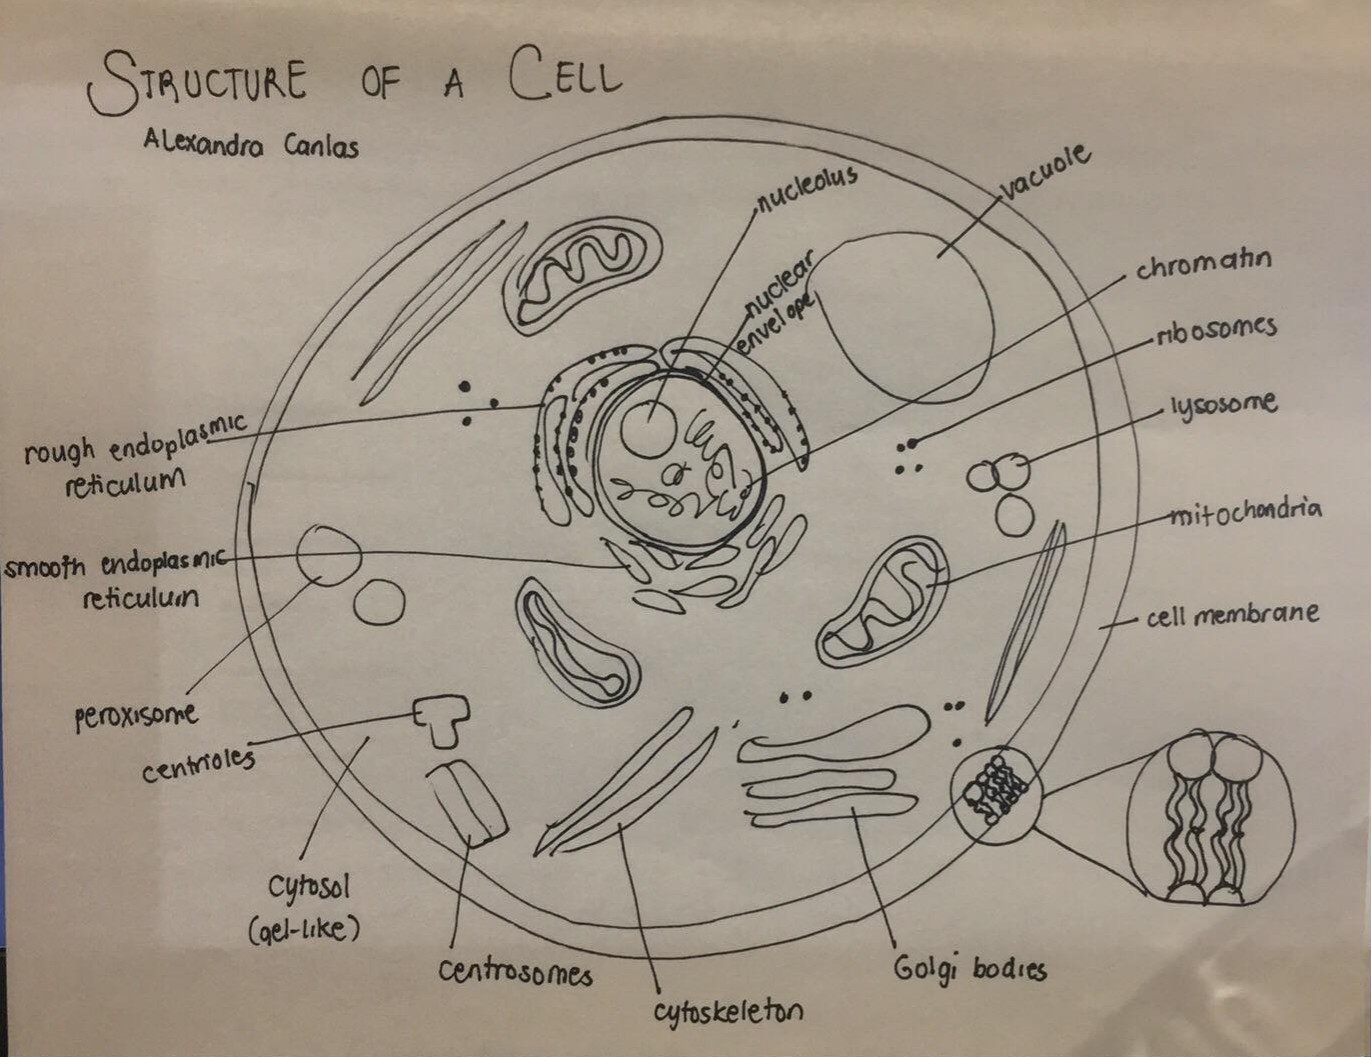 STRUCTURE OF A CELL
Alexandra Canlas
nucleolus
vacuole
nuclear
envelope
chromatin
ribosomes
lysosome
rough endoplasmic
reticulum
mitochondria
smooth endoplasmic
reticulum
cell membrane
peroxisome
centrioles
cytosol
(gel-like)
centrosomes
Golgi bodies
cytoskeleton